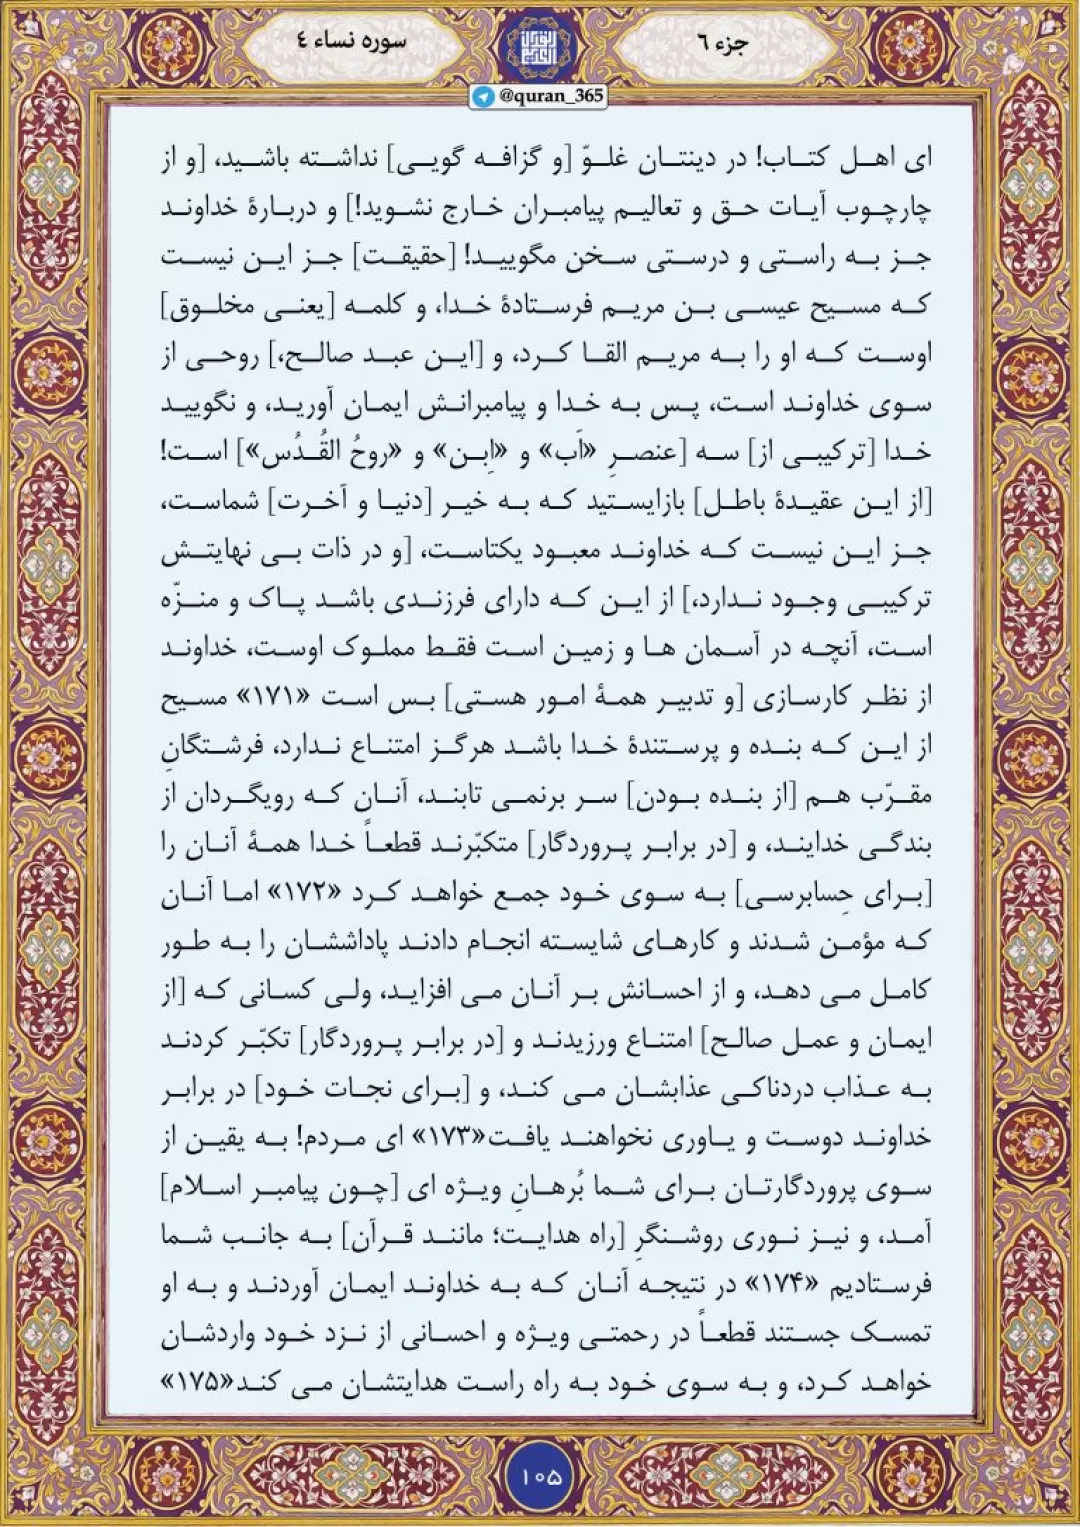 جزء ٦
سوره نساء ٤
@quran_365
ای اهـل کتـاب! در دینتـان غلـوّ [و گزافـه گویـی] نداشـته باشـید، [و از
چارچـوب آیـات حـق و تعالیـم پیامبـران خـارج نشـوید!] و دربـارۀ خداونـد
جـز بـه راسـتی و درسـتی سـخن مگوییـد! [حقیقـت] جـز ایـن نیسـت
کـه مسـیح عیسـی بـن مریـم فرسـتادۀ خـدا، و کلمـه [یعنـی مخلـوق]
اوسـت کـه او را بـه مریـم القـا کـرد، و [ایـن عبـد صالـح،] روحـی از
سـوی خداونـد اسـت، پـس بـه خـدا و پیامبرانـش ایمـان آوریـد، و نگوییـد
خـدا [ترکیبـی از] سـه [عنصـرِ «اَب» و «اِبـن» و «روحُ القُـدُس»] اسـت!
[از ایـن عقیـدۀ باطـل] بازایسـتید کـه بـه خیـر [دنیـا و آخـرت] شماسـت،
جـز ایـن نیسـت کـه خداونـد معبـود یکتاسـت، [و در ذات بـی نهایتـش
ترکیبـی وجـود نـدارد،] از ایـن کـه دارای فرزنـدی باشـد پـاک و منـزّه
اسـت، آنچـه در آسـمان هـا و زمیـن اسـت فقـط مملـوک اوسـت، خداونـد
از نظـر کارسـازی [و تدبیـر همـۀ امـور هسـتی] بـس اسـت «۱۷۱» مسـیح
از ایـن کـه بنـده و پرسـتندۀ خـدا باشـد هرگـز امتنـاع نـدارد، فرشـتگانِ
مقـرّب هـم [از بنـده بـودن] سـر برنمـی تابنـد، آنـان کـه رویگـردان از
بندگـی خداینـد، و [در برابـر پـروردگار] متکبّرنـد قطعـاً خـدا همـۀ آنـان را
[بـرای حِسابرسـی] بـه سـوی خـود جمـع خواهـد کـرد «۱۷۲» امـا آنـان
کـه مؤمـن شـدند و کارهـای شایسـته انجـام دادنـد پاداششـان را بـه طـور
کامـل مـی دهـد، و از احسـانش بـر آنـان مـی افزایـد، ولـی کسـانی کـه [از
ایمـان و عمـل صالـح] امتنـاع ورزیدنـد و [در برابـر پـروردگار] تکبّـر کردنـد
بـه عـذاب دردناکـی عذابشـان مـی کنـد، و [بـرای نجـات خـود] در برابـر
خداونـد دوسـت و یـاوری نخواهنـد یافـت«۱۷۳» ای مـردم! بـه یقیـن از
سـوی پروردگارتـان بـرای شـما بُرهـانِ ویـژه ای [چـون پیامبـر اسـلام]
آمـد، و نیـز نـوری روشـنگرِ [راه هدایـت؛ ماننـد قـرآن] بـه جانـب شـما
فرسـتادیم «۱۷۴» در نتیجـه آنـان کـه بـه خداونـد ایمـان آوردنـد و بـه او
تمسـک جسـتند قطعـاً در رحمتـی ویـژه و احسـانی از نـزد خـود واردشـان
خواهـد کـرد، و بـه سـوی خـود بـه راه راسـت هدایتشـان مـی کنـد«۱۷۵»
۱۰۵